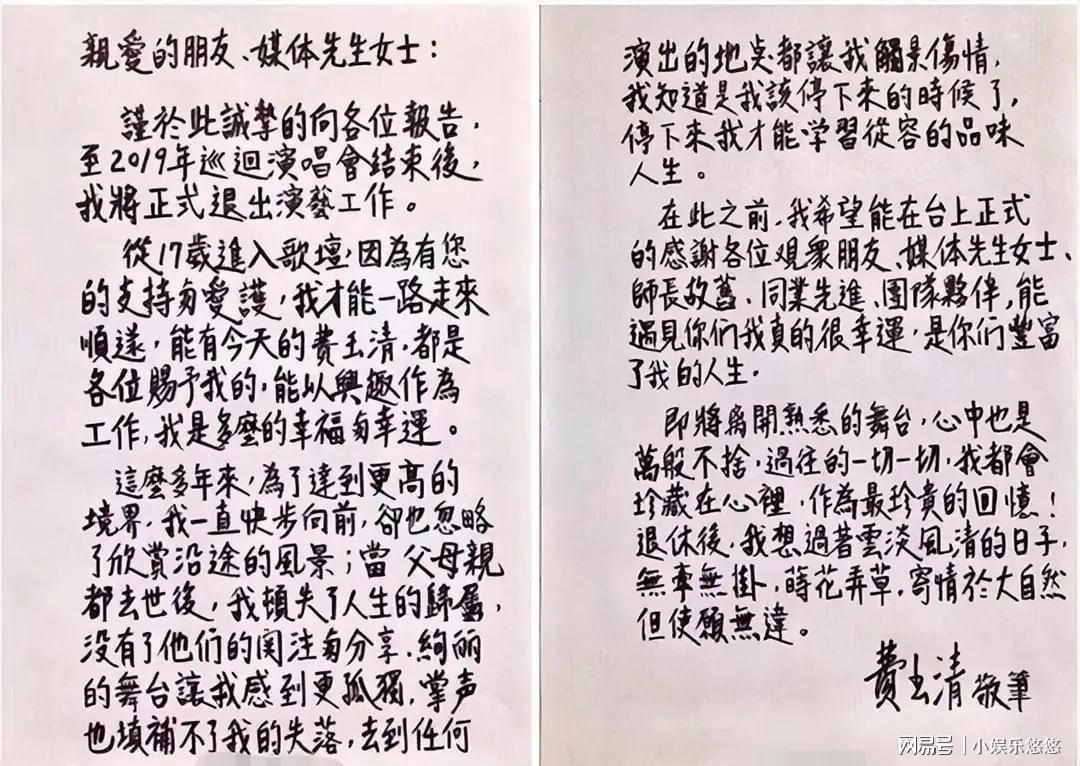 親愛的朋友、媒体先生女士：
謹於此誠摯的向各位報告，
至2019年巡迴演唱會結束後，
我將正式退出演藝工作。
從17歲進入歌壇，因為有您
的支持与愛護，我才能一路走來
順遂，能有今天的費玉清，都是
各位賜予我的，能以興趣作為
工作，我是多麼的幸福与幸運。
這麼多年來，為了達到更高的
境界，我一直快步向前，卻也忽略
了欣賞沿途的風景；當父母親
都去世後，我頓失了人生的歸屬，
没有了他们的関注与分享，絢丽
的舞台讓我感到更孤獨，掌声
也填補不了我的失落，去到任何
演出的地点都讓我觸景傷情，
我知道是我該停下來的時候了，
停下來我才能学習從容的品味
人生。
在此之前，我希望能在台上正式
的感謝各位观衆朋友、媒体先生女士、
師長故舊、同業先進、團隊夥伴，能
遇見你们我真的很幸運，是你们豐富
了我的人生。
即將离開熟悉的舞台，心中也是
萬般不捨，過往的一切一切，我都會
珍藏在心裡，作為最珍貴的回憶！
退休後，我想過著雲淡風清的日子，
無牽無掛，蒔花弄草，寄情於大自然
但使願無違。
費玉清 敬筆
网易号 | 小娱乐悠悠